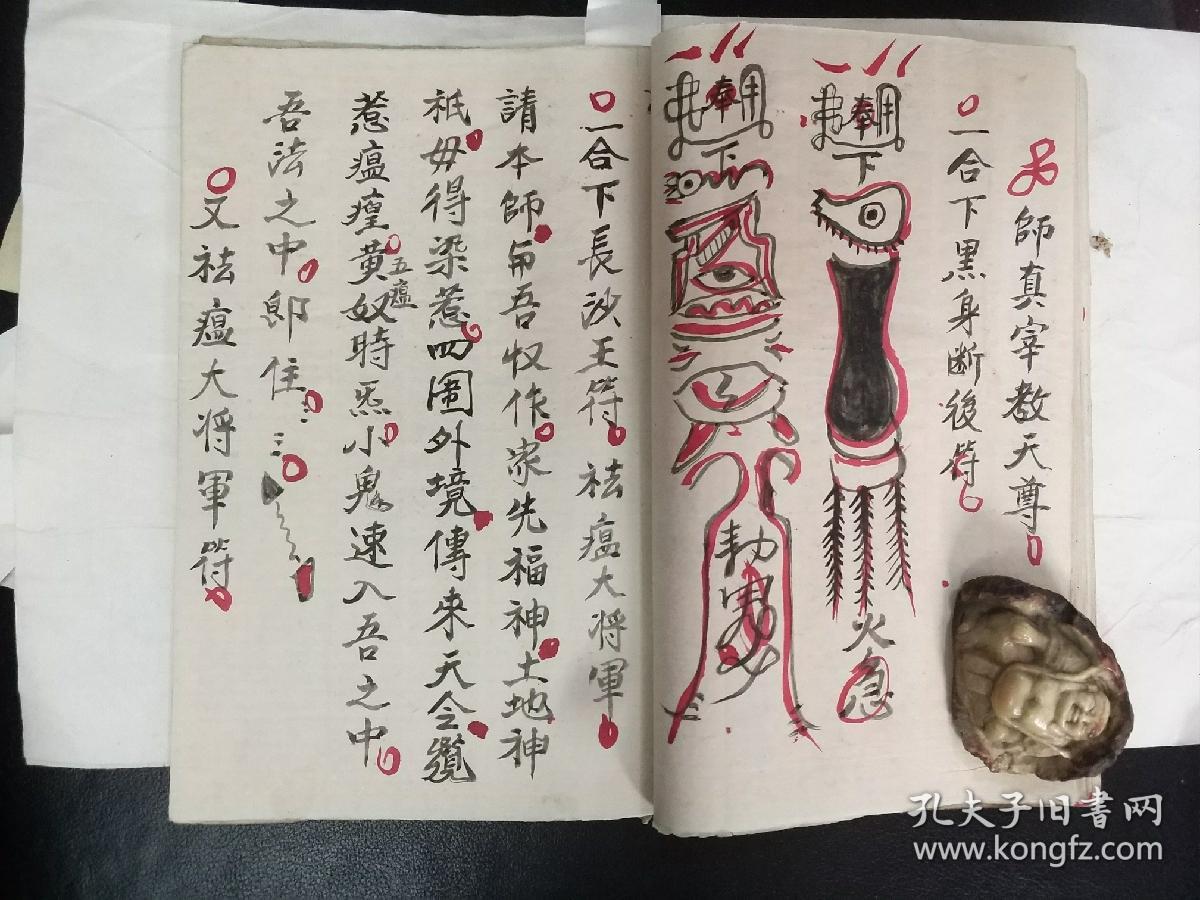 師真宰教天尊
一合下黑身断後符
奉
下
火急
奉
下
勅
一合下長沙王符祛瘟大将軍
請本師與吾收作家先福神土地神
祇毋得染惹四圍外境傳來天仝纜
惹瘟瘽黄奴時炁小鬼速入吾之中
五瘟
吾法之中即住
又祛瘟大将軍符
孔夫子旧書网
www.kongfz.com